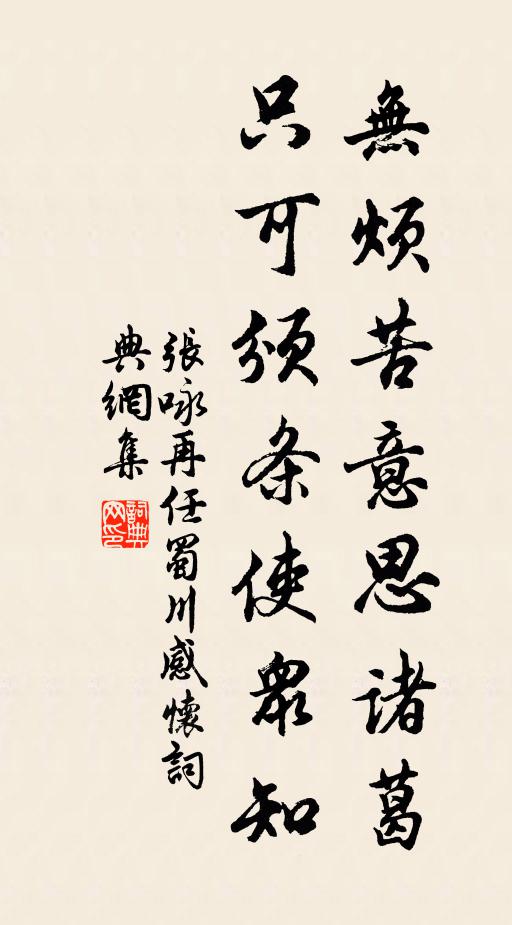 無煩苦意思諸葛
只可頒条使衆知
張咏再任蜀川感懷詞
典網集
詞典
网印